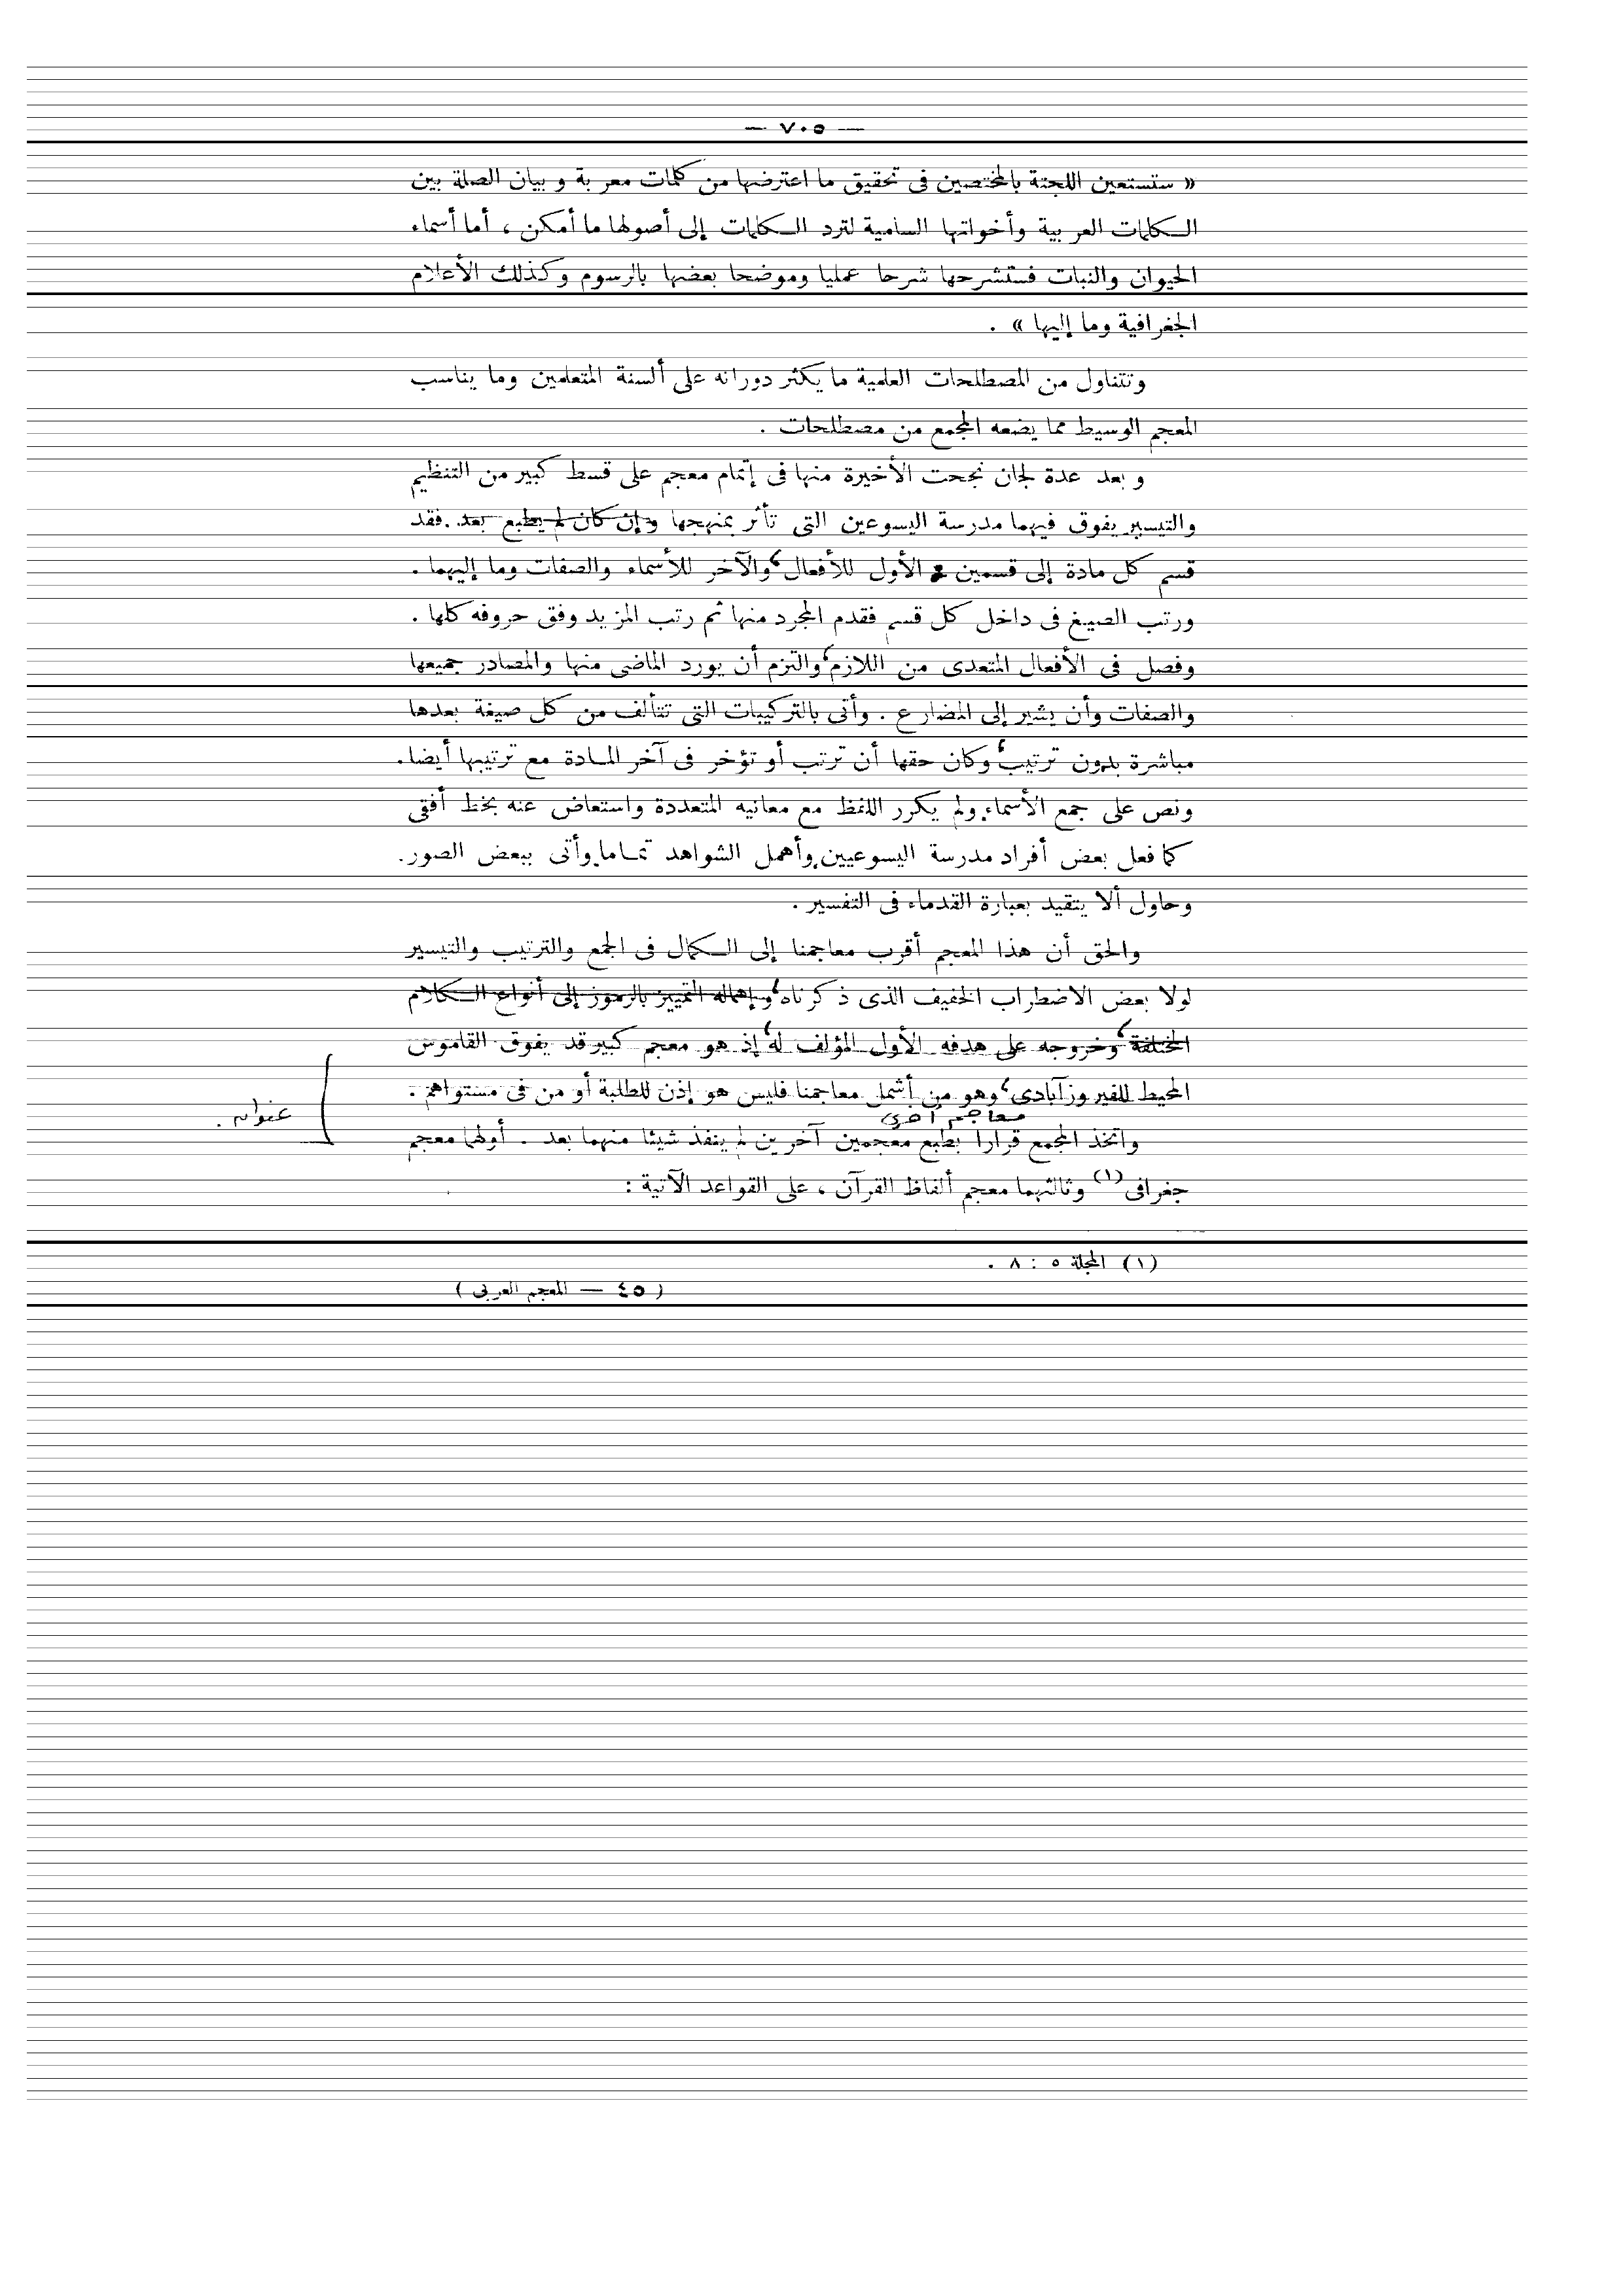 — ٧٠٥ —
« ستستعين اللجنة بالمختصين فى تحقيق ما اعترضها من كلمات معربة وبيان الصلة بين
الكلمات العربية وأخواتها السامية لترد الكلمات إلى أصولها ما أمكن ، أما أسماء
الحيوان والنبات فستشرحها شرحا عمليا وموضحا بعضها بالرسوم وكذلك الأعلام
الجغرافية وما إليها » .
وتتناول من المصطلحات العلمية ما يكثر دورانه على ألسنة المتعلمين وما يناسب
المعجم الوسيط مما يضعه المجمع من مصطلحات .
وبعد عدة لجان نجحت الأخيرة منها فى إتمام معجم على قسط كبير من التنظيم
والتيسير يفوق فيهما مدرسة اليسوعين التى تأثر بمنهجها وإن كان لم يطبع بعد. فقد
قسم كل مادة إلى قسمين الأول للأفعال، والآخر للأسماء والصفات وما إليهما .
ورتب الصيغ فى داخل كل قسم فقدم المجرد منها ثم رتب المزيد وفق حروفه كلها .
وفصل فى الأفعال المتعدى من اللازم، والتزم أن يورد الماضى منها والمصادر جميعها
والصفات وأن يشير إلى المضارع . وأتى بالتركيبات التى تتألف من كل صيغة بعدها
مباشرة بدون ترتيب، وكان حقها أن ترتب أو تؤخر فى آخر المادة مع ترتيبها أيضا.
ونص على جمع الأسماء، ولم يكرر اللفظ مع معانيه المتعددة واستعاض عنه بخط أفقى
كما فعل بعض أفراد مدرسة اليسوعيين، وأهمل الشواهد تماما، وأتى ببعض الصور.
وحاول ألا يتقيد بعبارة القدماء فى التفسير .
والحق أن هذا المعجم أقرب معاجمنا إلى الكمال فى الجمع والترتيب والتيسير
لولا بعض الاضطراب الخفيف الذى ذكرناه، وإهماله التمييز بالرموز إلى أنواع الكلام
المختلفة، وخروجه على هدفه الأول المؤلف له، إذ هو معجم كبير قد يفوق القاموس
المحيط للفيروزآبادى، وهو من أشمل معاجمنا فليس هو إذن للطلبة أو من فى مستواهم .
معاجم أخرى
عنوان .
واتخذ المجمع قرارا بطبع معجمين آخرين لم ينفذ شيئا منهما بعد . أولهما معجم
جغرافى (١) وثالثهما معجم ألفاظ القرآن ، على القواعد الآتية :
(١) المجلة ٥ : ٨ .
( ٤٥ — المعجم العربى )